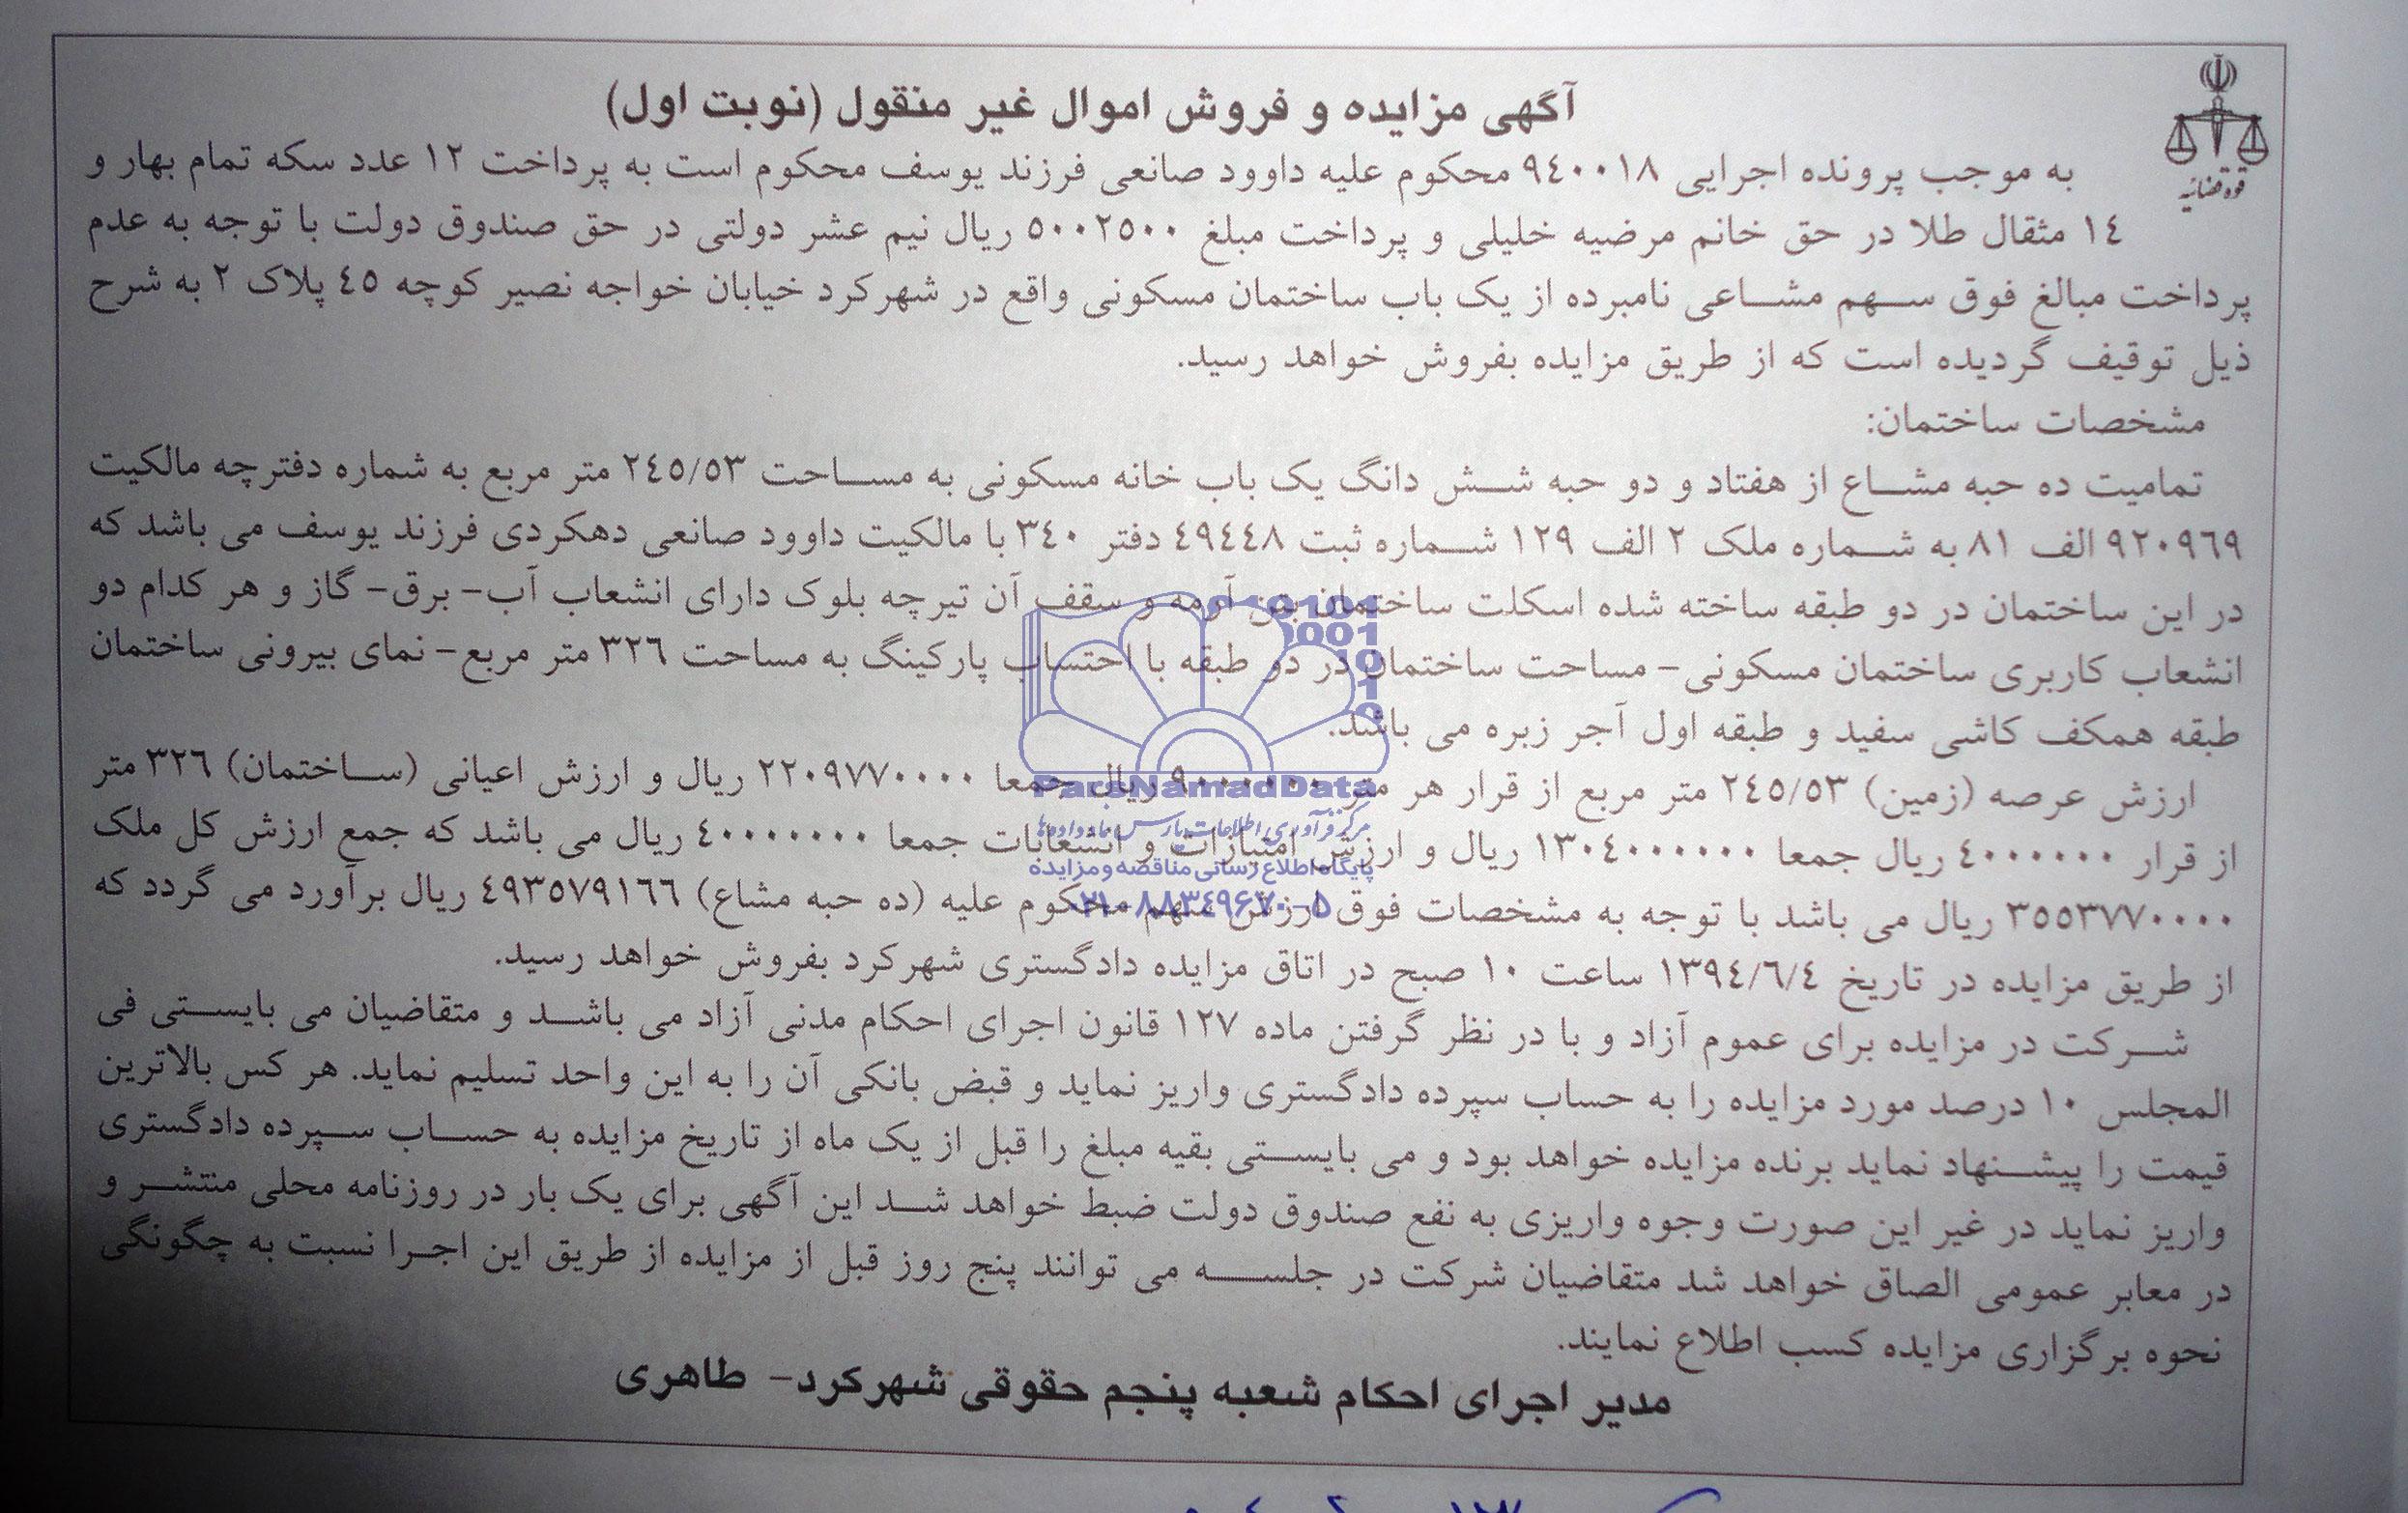 قوه قضائیه
آگهی مزایده و فروش اموال غیر منقول (نوبت اول)
به موجب پرونده اجرایی ٩٤٠٠١٨ محکوم علیه داوود صانعی فرزند یوسف محکوم است به پرداخت ١٢ عدد سکه تمام بهار و
١٤ مثقال طلا در حق خانم مرضیه خلیلی و پرداخت مبلغ ٥٠٠٢٥٠٠ ریال نیم عشر دولتی در حق صندوق دولت با توجه به عدم
پرداخت مبالغ فوق سهم مشاعی نامبرده از یک باب ساختمان مسکونی واقع در شهرکرد خیابان خواجه نصیر کوچه ٤٥ پلاک ٢ به شرح
ذیل توقیف گردیده است که از طریق مزایده بفروش خواهد رسید.
مشخصات ساختمان:
تمامیت ده حبه مشاع از هفتاد و دو حبه شش دانگ یک باب خانه مسکونی به مساحت ٢٤٥/٥٣ متر مربع به شماره دفترچه مالکیت
٩٢٠٩٦٩ الف ٨١ به شماره ملک ٢ الف ١٢٩ شماره ثبت ٤٩٤٤٨ دفتر ٣٤٠ با مالکیت داوود صانعی دهکردی فرزند یوسف می باشد که
در این ساختمان در دو طبقه ساخته شده اسکلت ساختمان بتن آرمه و سقف آن تیرچه بلوک دارای انشعاب آب- برق- گاز و هر کدام دو
انشعاب کاربری ساختمان مسکونی- مساحت ساختمان در دو طبقه با احتساب پارکینگ به مساحت ٣٢٦ متر مربع- نمای بیرونی ساختمان
طبقه همکف کاشی سفید و طبقه اول آجر زبره می باشد.
ارزش عرصه (زمین) ٢٤٥/٥٣ متر مربع از قرار هر متر ٩٠٠٠٠٠٠ ریال جمعا ٢٢٠٩٧٧٠٠٠٠ ریال و ارزش اعیانی (ساختمان) ٣٢٦ متر
از قرار ٤٠٠٠٠٠٠ ریال جمعا ١٣٠٤٠٠٠٠٠٠ ریال و ارزش امتیازات و انشعابات جمعا ٤٠٠٠٠٠٠٠ ریال می باشد که جمع ارزش کل ملک
٣٥٥٣٧٧٠٠٠٠ ریال می باشد با توجه به مشخصات فوق ارزش سهم محکوم علیه (ده حبه مشاع) ٤٩٣٥٧٩١٦٦ ریال برآورد می گردد که
از طریق مزایده در تاریخ ١٣٩٤/٦/٤ ساعت ١٠ صبح در اتاق مزایده دادگستری شهرکرد بفروش خواهد رسید.
شرکت در مزایده برای عموم آزاد و با در نظر گرفتن ماده ١٢٧ قانون اجرای احکام مدنی آزاد می باشد و متقاضیان می بایستی فی
المجلس ١٠ درصد مورد مزایده را به حساب سپرده دادگستری واریز نماید و قبض بانکی آن را به این واحد تسلیم نماید. هر کس بالاترین
قیمت را پیشنهاد نماید برنده مزایده خواهد بود و می بایستی بقیه مبلغ را قبل از یک ماه از تاریخ مزایده به حساب سپرده دادگستری
واریز نماید در غیر این صورت وجوه واریزی به نفع صندوق دولت ضبط خواهد شد این آگهی برای یک بار در روزنامه محلی منتشر و
در معابر عمومی الصاق خواهد شد متقاضیان شرکت در جلسه می توانند پنج روز قبل از مزایده از طریق این اجرا نسبت به چگونگی
نحوه برگزاری مزایده کسب اطلاع نمایند.
مدیر اجرای احکام شعبه پنجم حقوقی شهرکرد- طاهری
ParsNamadData
مرکز فرآوری اطلاعات پارس نماد داده ها
پایگاه اطلاع رسانی مناقصه و مزایده
۰۲۱-۸۸۳۴۹۶۷۰-۵